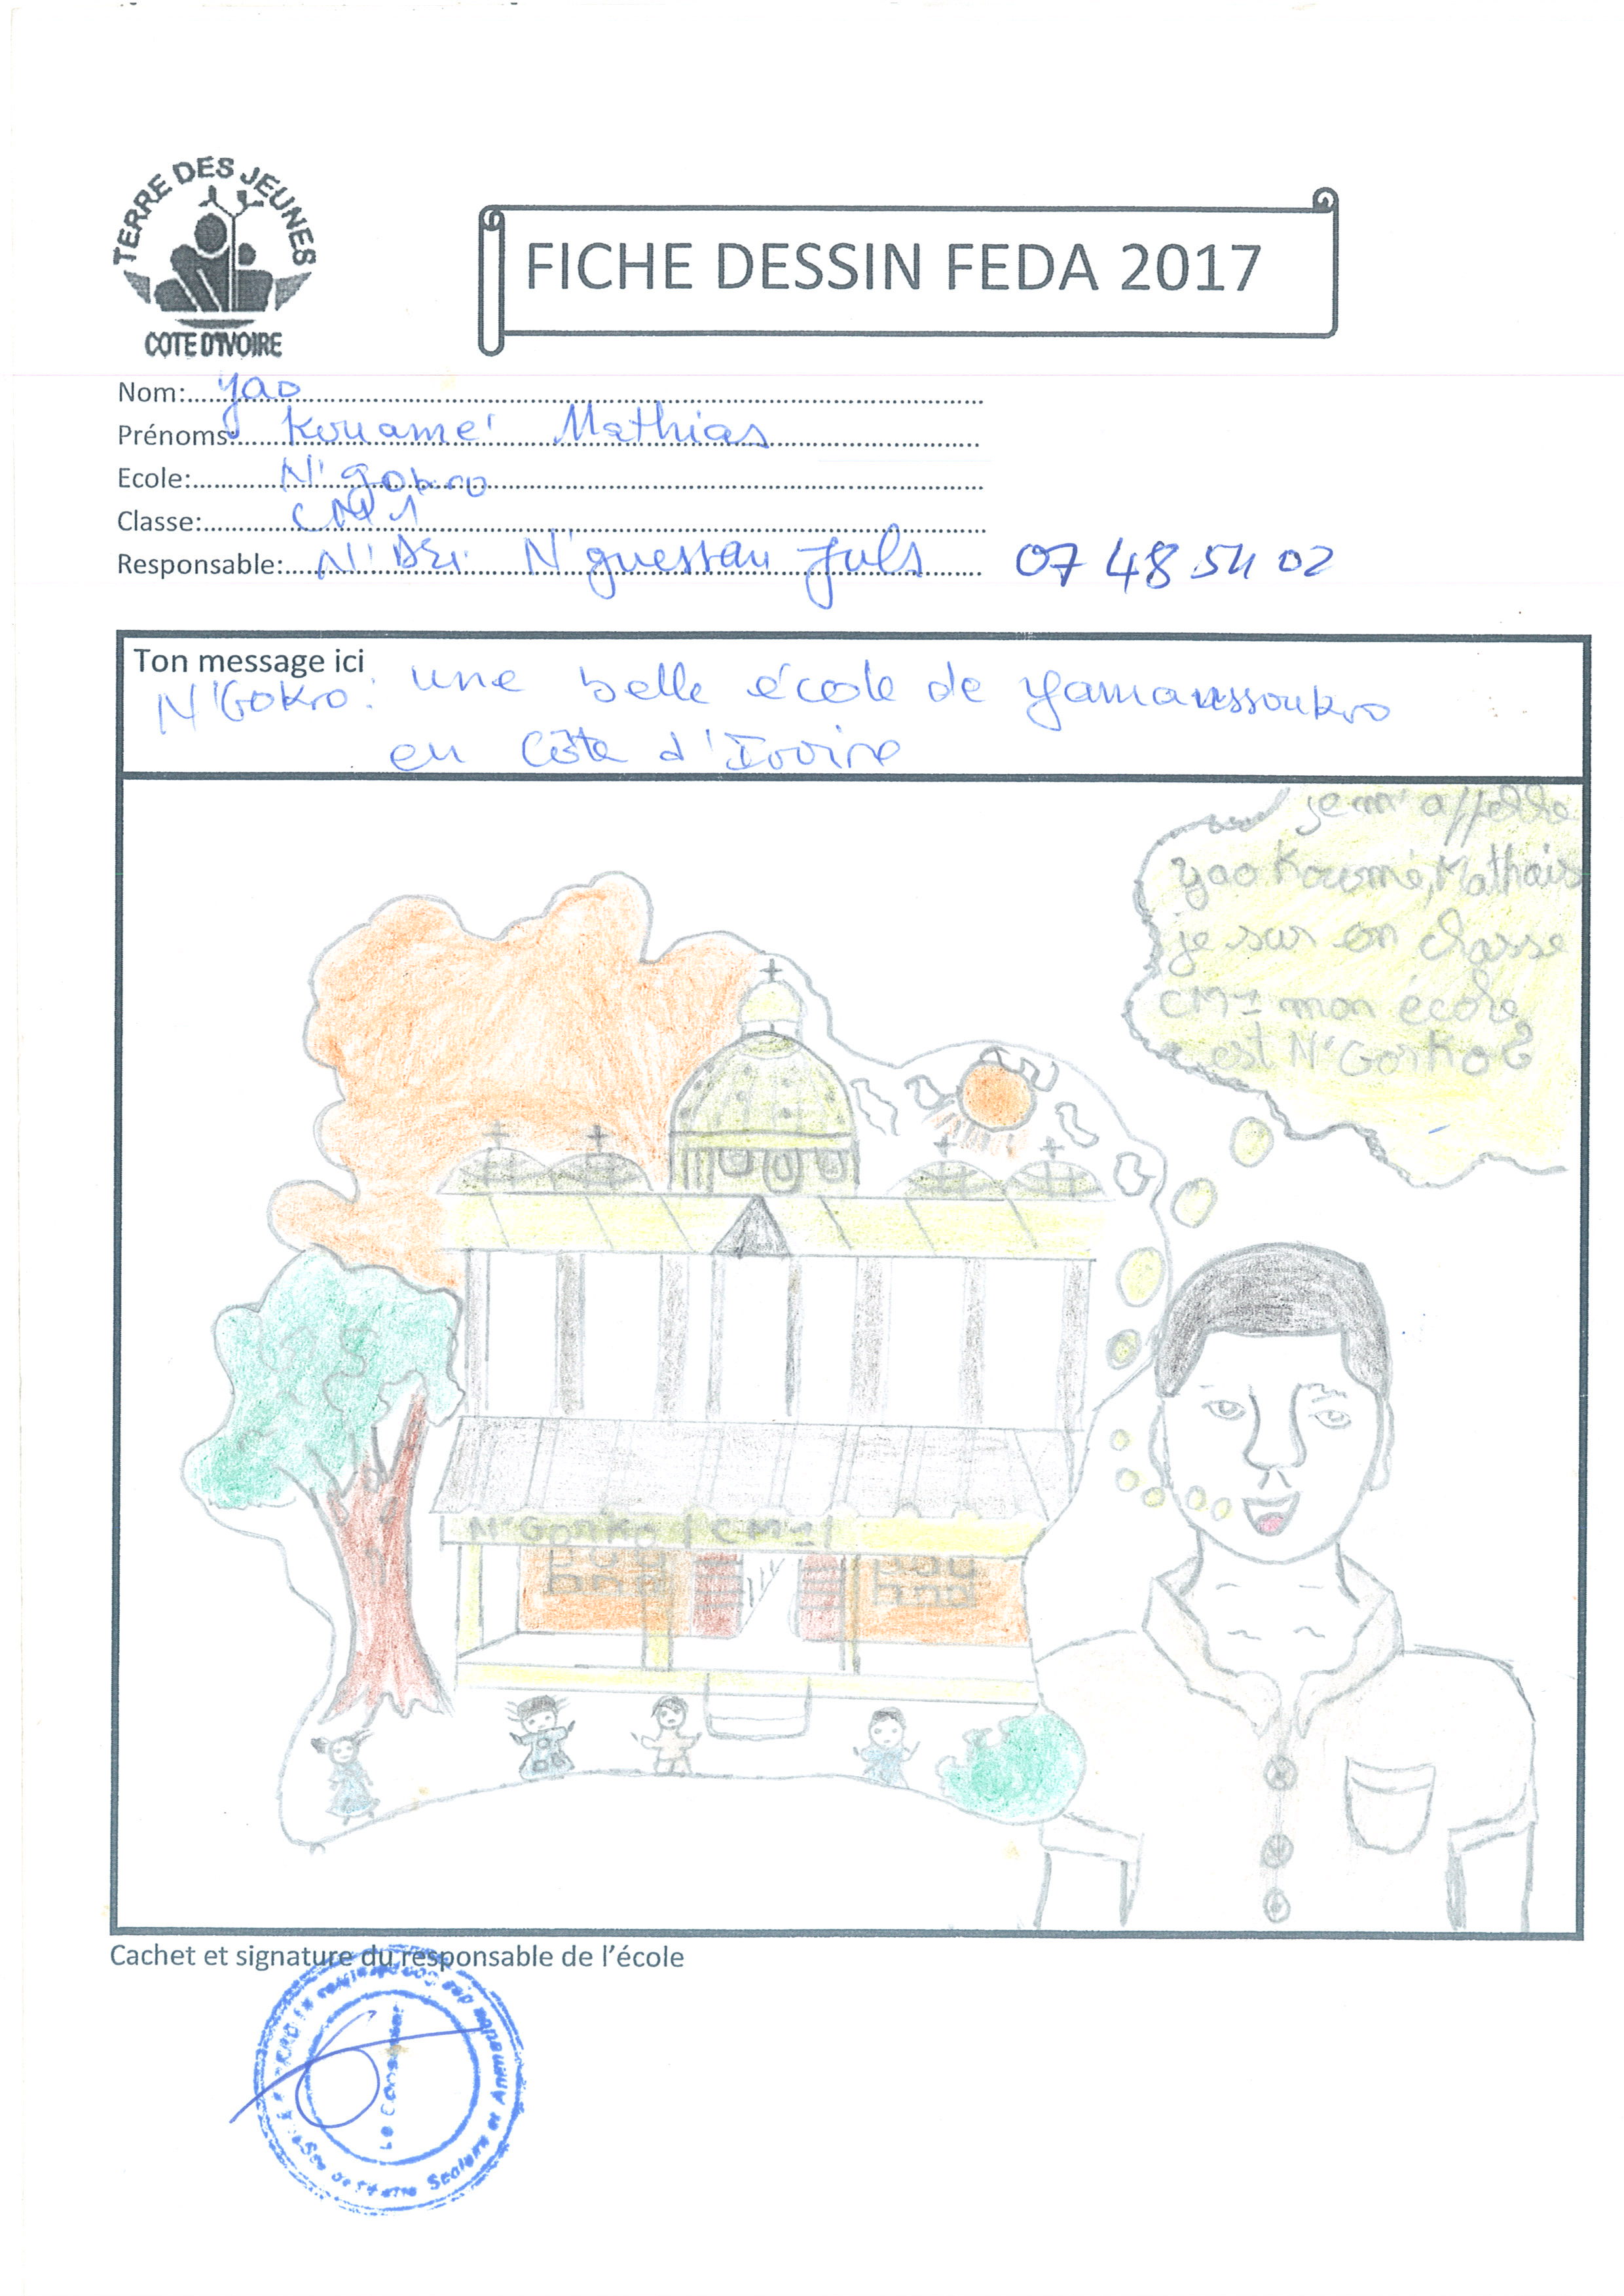 TERRE DES JEUNES
COTE D'IVOIRE
FICHE DESSIN FEDA 2017
Nom: Yao
Prénoms: Kouamé Mathias
Ecole: N'gokro
Classe: CM1
Responsable: N'Dri N'guessan Juls 07 48 54 02
Ton message ici
N'Gokro: une belle école de Yamaussoukro
en Côte d'Ivoire
je m'appelle
Yao Koumé, Mathais
je suis en classe
CM1 mon école
est N'Gorko
N'Gorko CM1
Cachet et signature du responsable de l'école